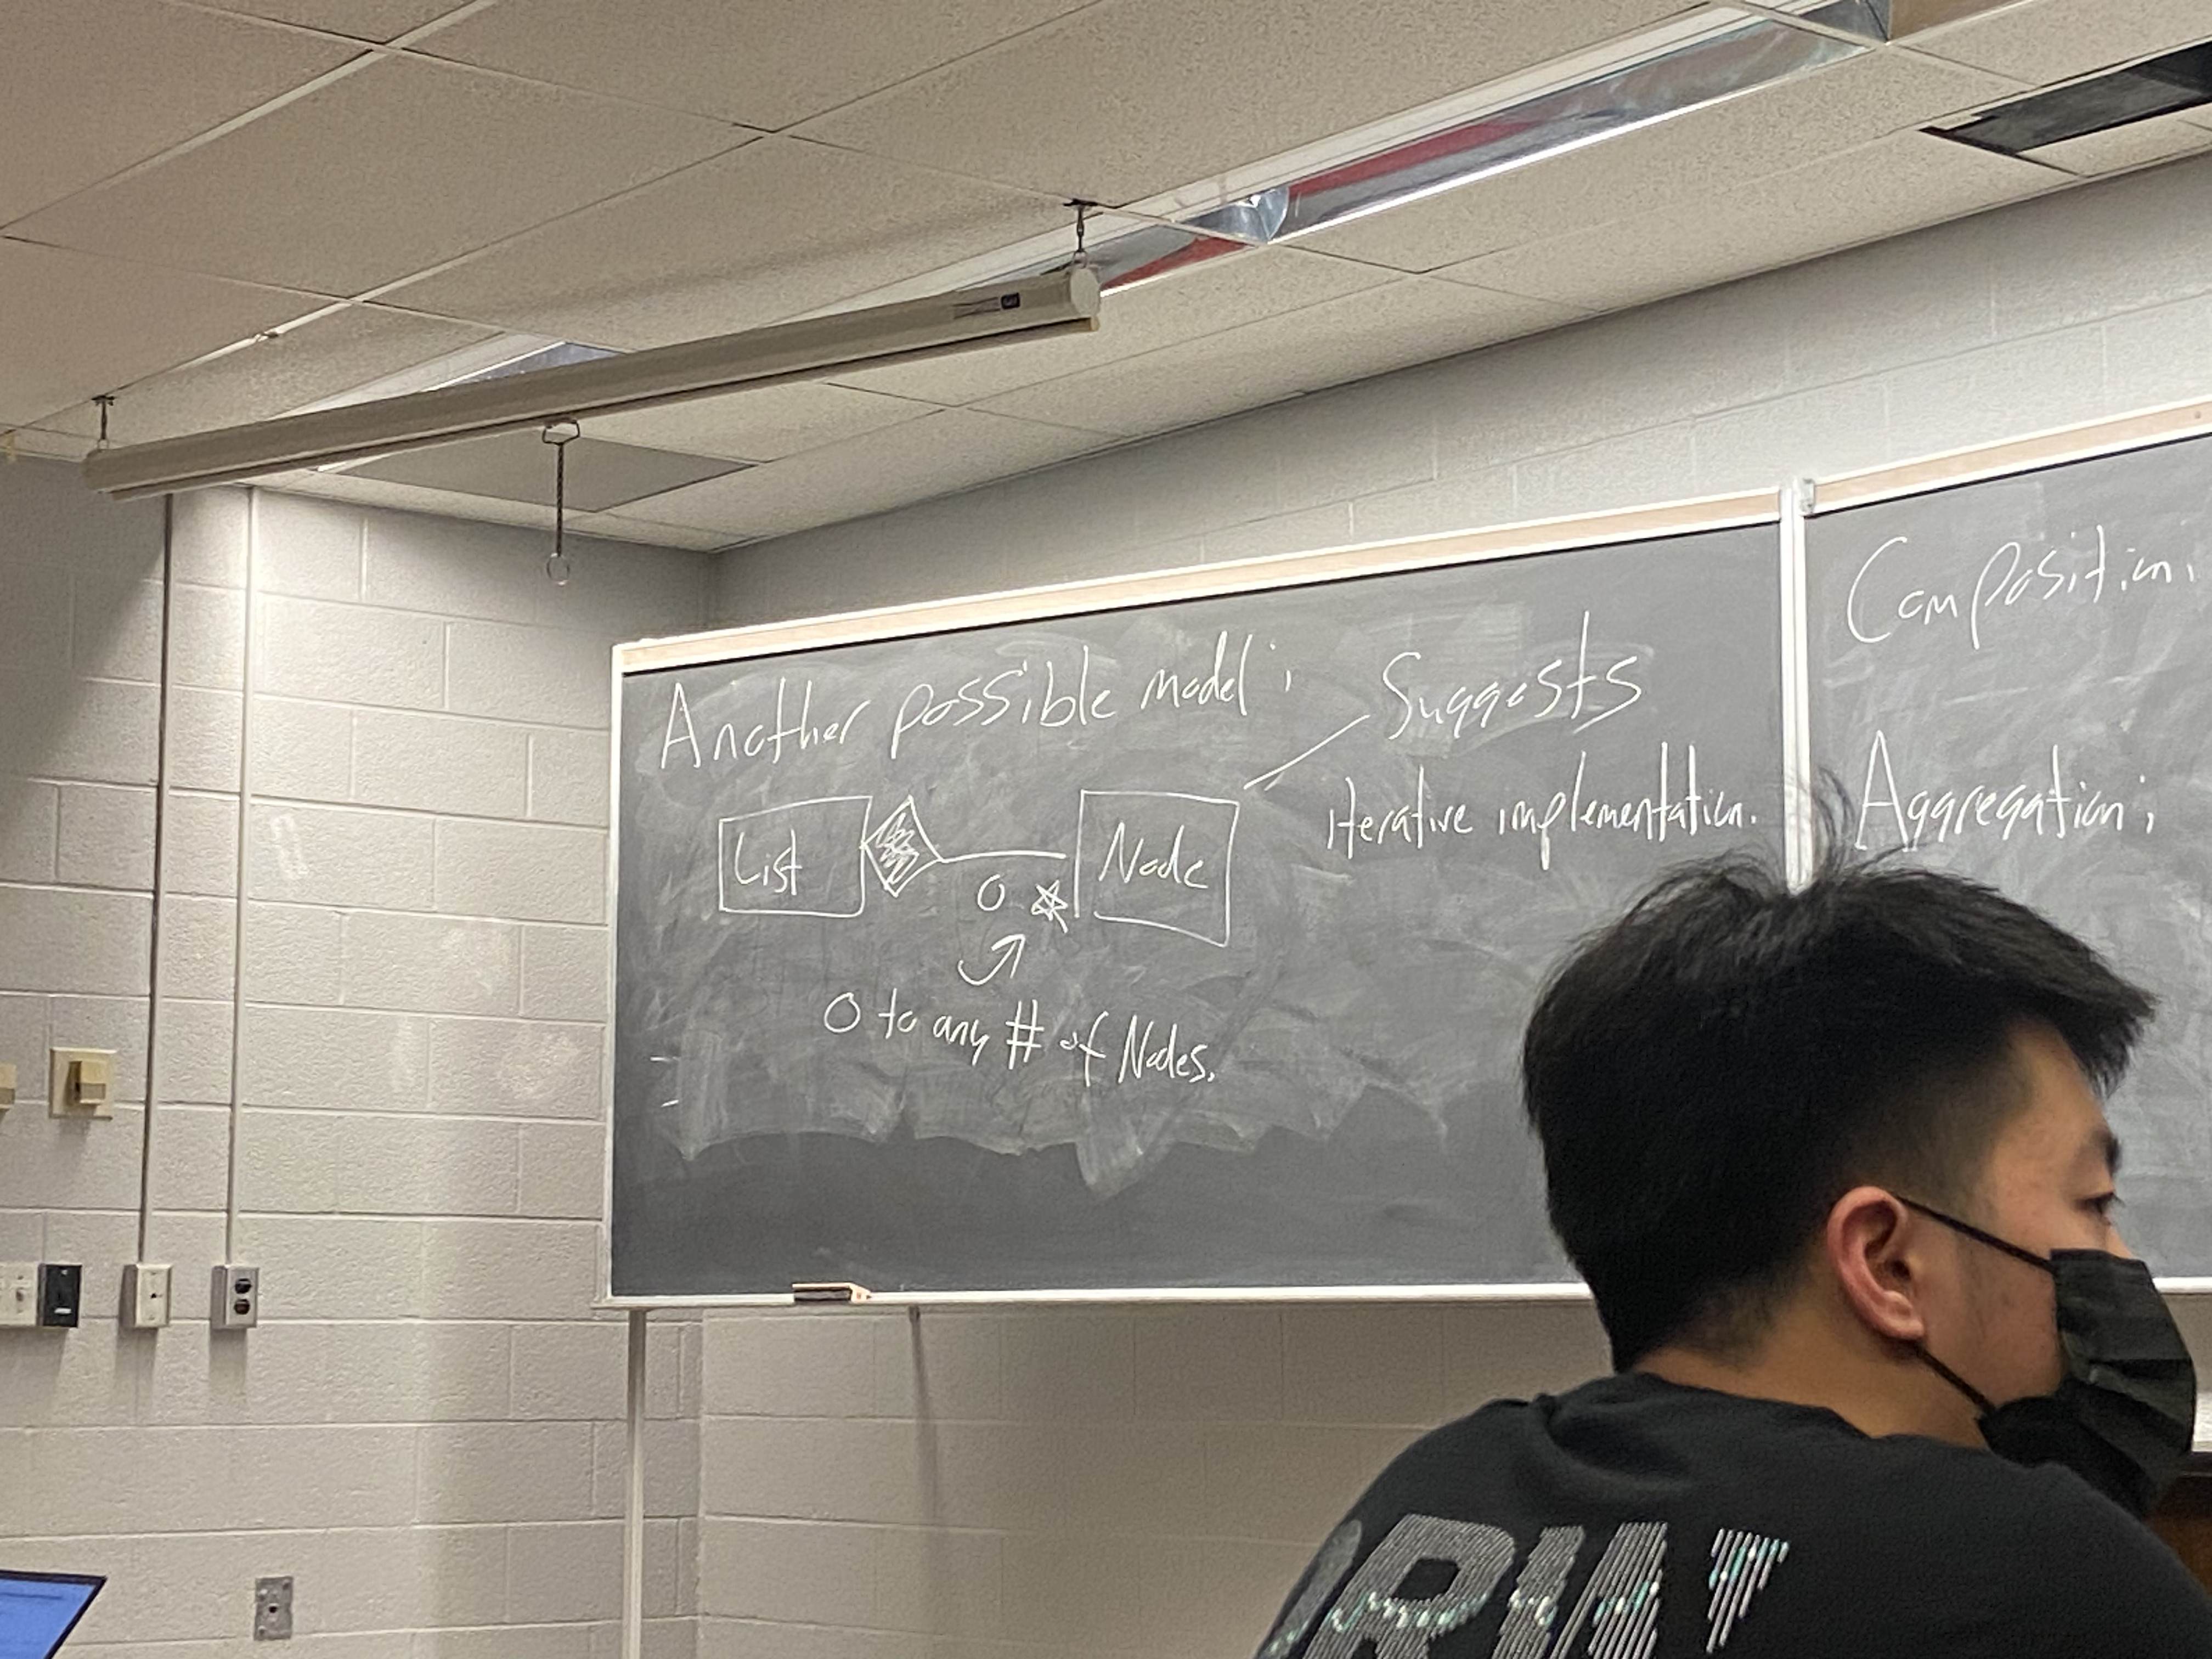 Another possible model:
Suggests
iterative implementation.
List
Node
0 *
0 to any # of Nodes.
Composition:
Aggregation: